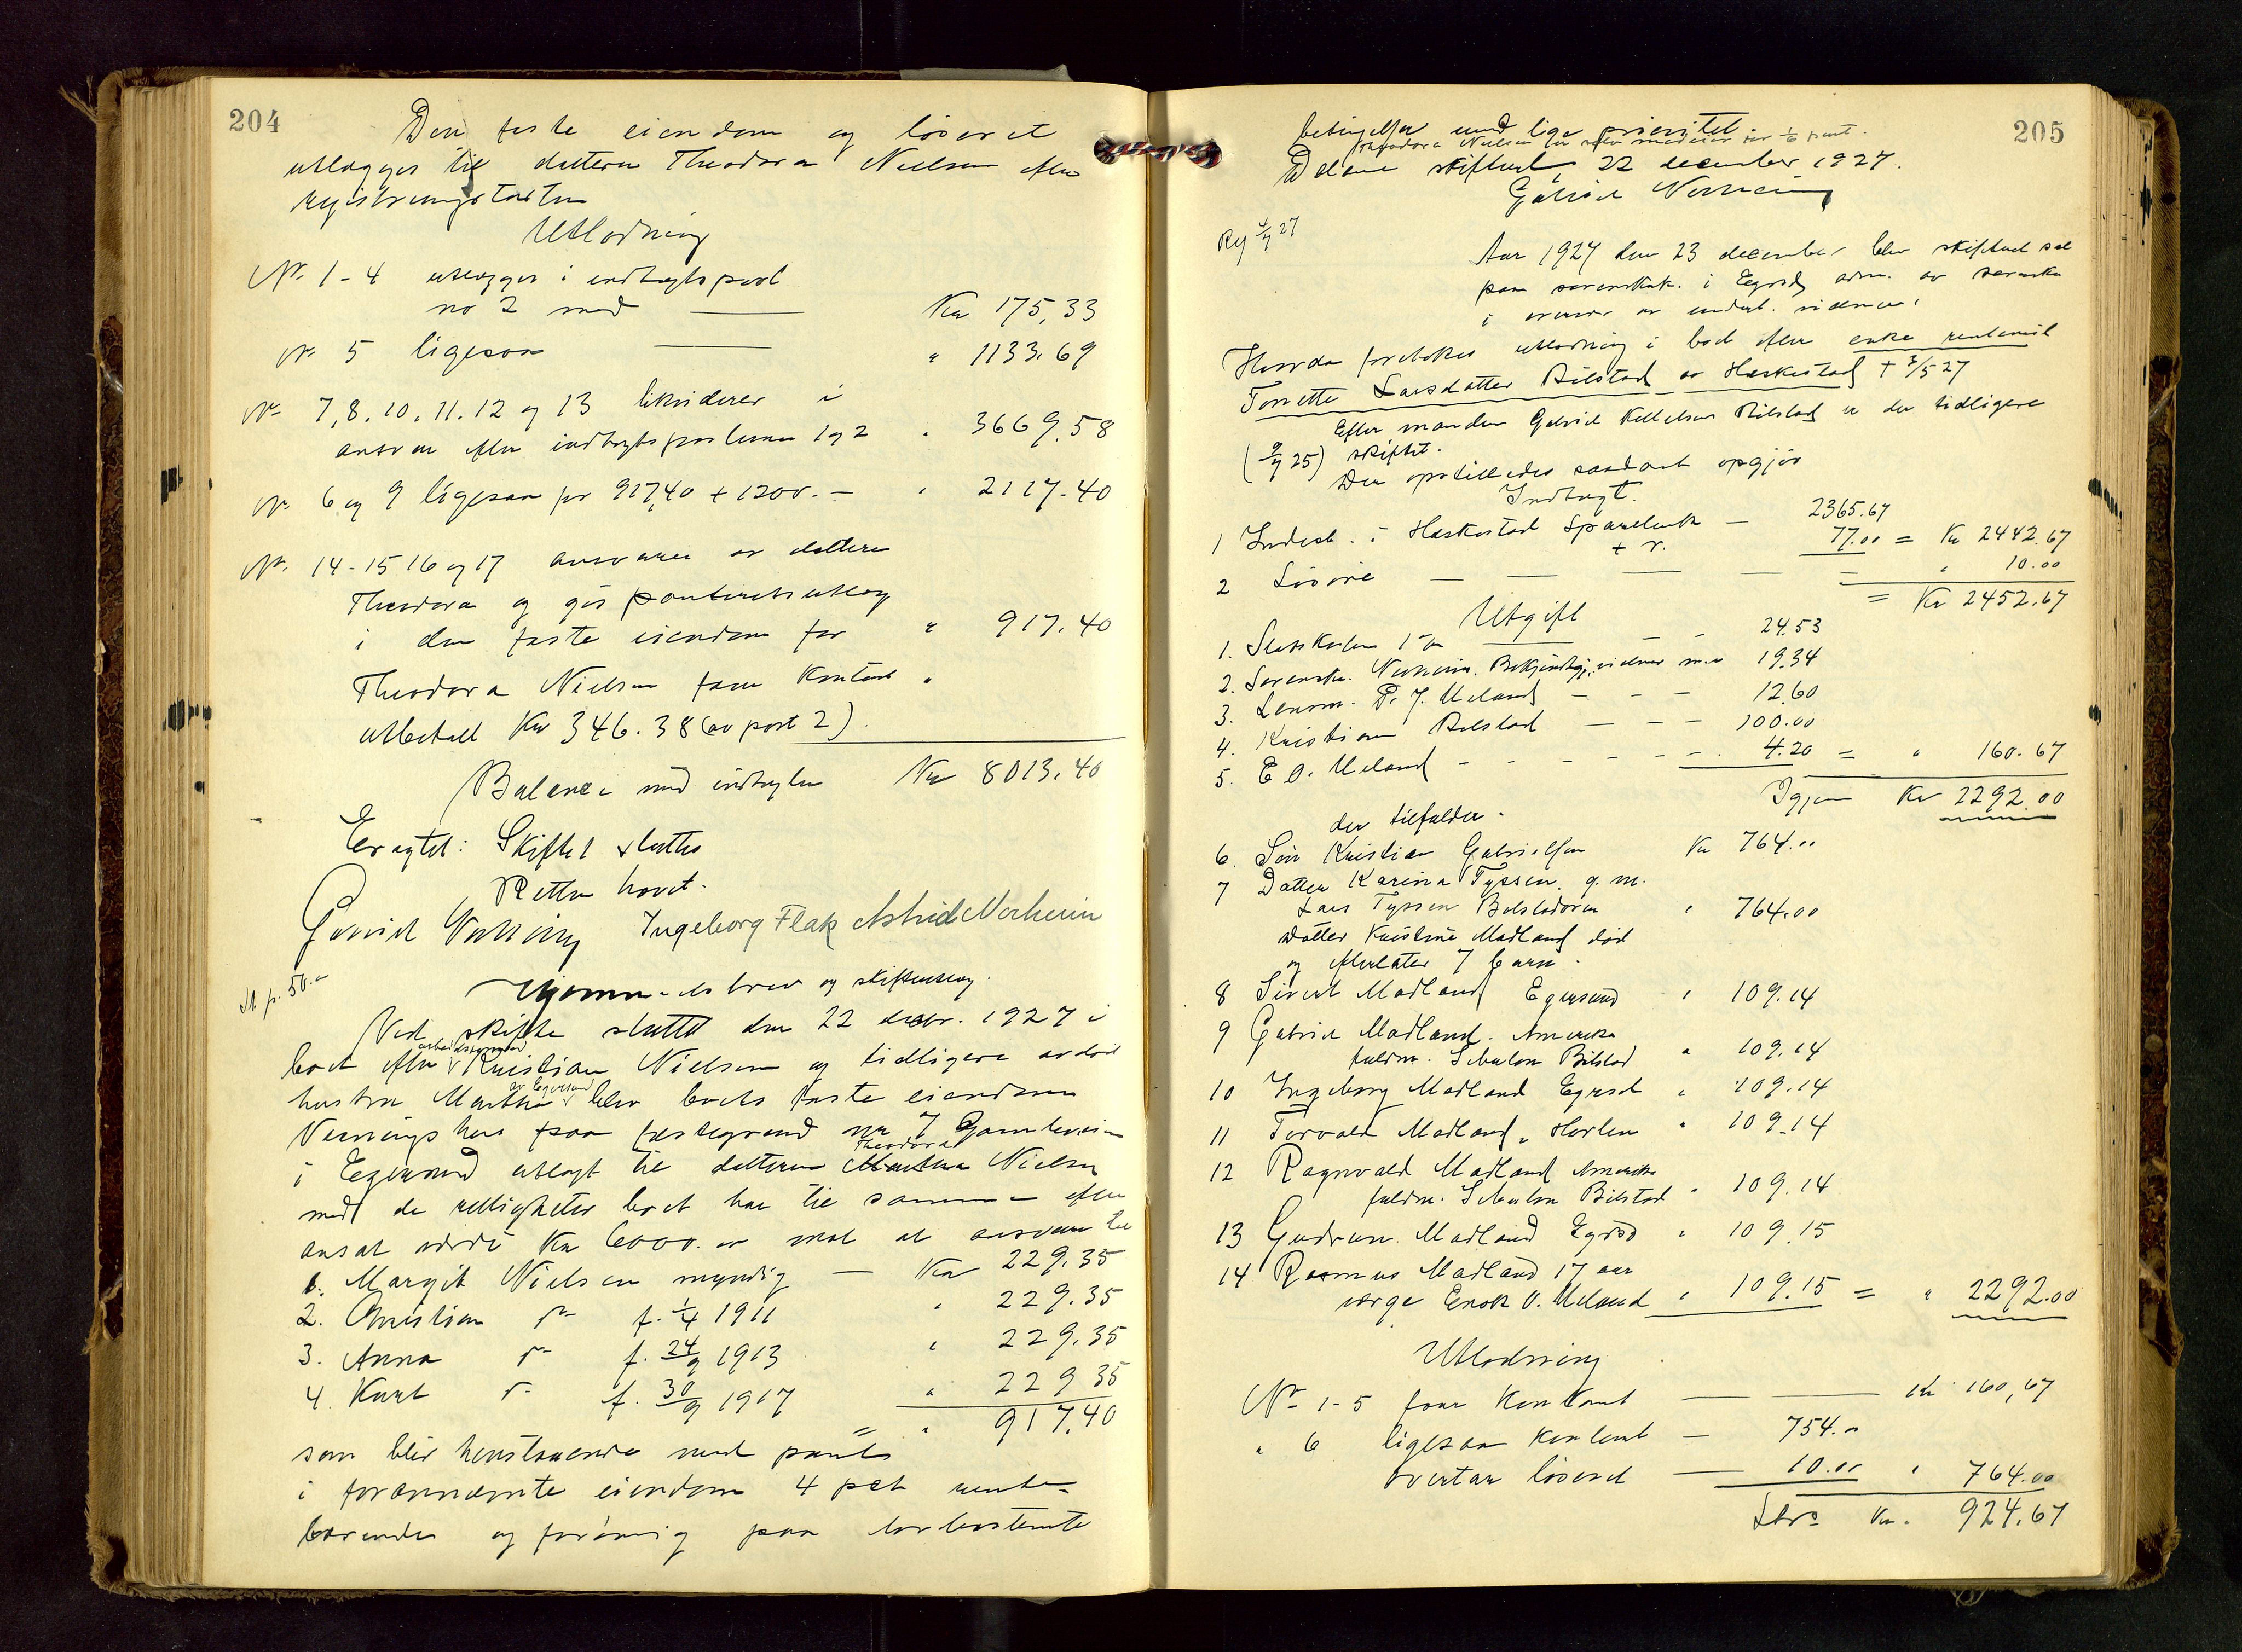 204
Den faste eiendom og løsøret
utlægges til datteren Theodora Nielsen efter
registreringstaksten
Utlodning
Nr. 1-4 utlægges i indtægtspost
no 2 med — Kr 175,33
Nr 5 ligesaa — " 1133.69
Nr 7, 8, 10, 11, 12 og 13 likviderer i
ansvar efter indtægtsposterne 1 og 2 " 3669,58
Nr 6 og 9 ligesaa for 917,40 + 1200.- " 2117.40
Nr. 14-15 16 og 17 ansvares av datteren
Theodora og gis panteretsutlæg
i den faste eiendom for " 917.40
Theodora Nielsen faar kontant "
utbetalt Kr 346.38 (av post 2).
Balance med indtægten Kr 8013.40
Eragtet: Skiftet sluttes
Retten hævet.
Gabriel Nerheim Ingeborg Flak Astrid Nerheim
St p. 50.-
Hjemmelsbrev og skifteutlæg.
Ved skifte sluttet den 22 decbr. 1927 i
boet efter arbeidsmand Kristian Nielsen og tidligere avdød
hustru Marthe av Egersund blev boets faste eiendom
Vaaningshus paa festegrund nr 7 Gamleveien
i Egersund utlagt til datteren Theodora Nielsen
med de rettigheter boet har til samme efter
ansat værdi Kr 6000.00 mot at ansvare til
1. Margit Nielsen myndig — Kr 229.35
2. Christian do f. 1/4 1911 " 229.35
3. Anna do f. 24/9 1913 " 229.35
4. Kurt do f. 30/9 1917 " 229 35
= " 917.40
som blir henstaaende med pant
i forannævnte eiendom 4 pct rente-
bærende og forøvrig paa lovbestemte
205
betingelser med lige prioritet.
Theodora Nielsen er selv medeier for 1/6 part.
Dalane skifteret, 22 december 1927.
Gabriel Nerheim
Aar 1927 den 23 december blev skifteret sat
paa sorenskrk. i Egersd adm. av sorenskr
i nærvær av undert. vidner.
Hvorda foretokes utlodning i boet efter enke
Tonette Larsdatter Bilstad av Heskestad + 3/5 27
Efter manden Gabriel Kettelsen Bilstad er der tidligere
(9/7 25) skiftet.
Der opstilledes saadant opgjør
Indtægt.
1 Indest. i Heskestad Sparebank — 2365.67
+ r. 77.00 = Kr 2442.67
2 Løsøre — — — — — " 10.00
= Kr 2452.67
Utgift
1. Statskassen 1 % — — 24.53
2. Sorenskr. Nerheim. Bekjendtgj, vidner m.v 19.34
3. Lensm. P. J. Meland — — — 12.60
4. Kristian Bilstad — — — 100.00
5. E O. Meland — — — — — 4.20 = " 160.67
Igjen Kr 2292.00
der tilfalder.
6. Søn Kristian Gabrielsen Kr 764.00
7 Datter Karina Tyssen. g. m.
Lars Tyssen Bilstadøren " 764.00
Datter Kristine Madland død
og efterlater 7 barn.
8 Sivert Madland Egersund " 109.14
9 Gabriel Madland. Amerika
fuldm. Sebulon Bilstad " 109.14
10 Ingeborg Madland Egersd " 109.14
11 Torvald Madland, " 109.14
12 Ragnvald Madland Amerika
fuldm. Sebulon Bilstad " 109.14
13 Gudrun Madland Egrsd " 109.15
14 Rasmus Madland 17 aar
værge Enok O. Meland " 109.15 = " 2292.00
Utlodning
Nr 1-5 faar kontant — — Kr 160,67
" 6 ligesaa kontant — 754.00
overtar løsøret — 10.00 " 764.00
Lbrs Kr. 924.67